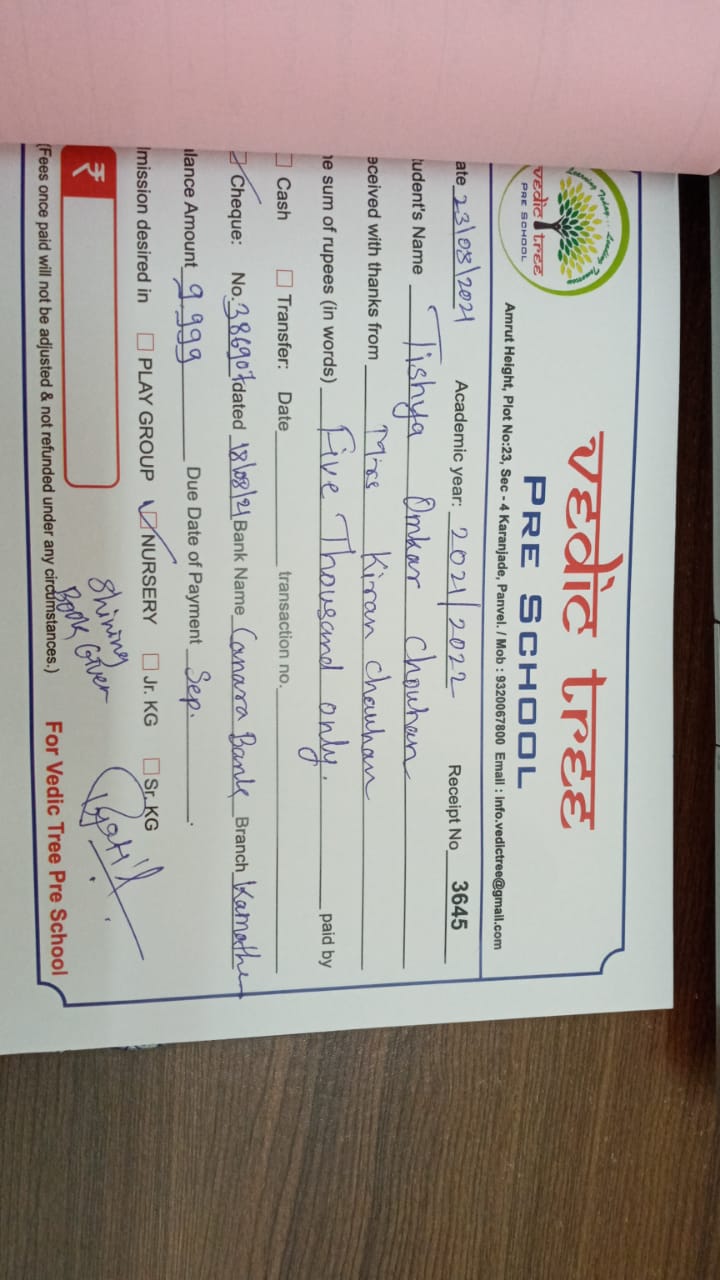 Learning Today... Leading Tomorrow
vedic tree
PRE SCHOOL
vedic tree
PRE SCHOOL
Amrut Height, Plot No:23, Sec - 4 Karanjade, Panvel. / Mob : 9320067800 Email : info.vedictree@gmail.com
ate 23/08/2021 Academic year: 2021/2022 Receipt No 3645
tudent's Name Tishya Omkar Chouhan
eceived with thanks from Mrs Kiran Chauhan
he sum of rupees (in words) Five Thousand only. paid by
Cash Transfer: Date transaction no.
Cheque: No. 386907 dated 18/08/21 Bank Name Canara Bank Branch Kamothe
alance Amount 9,999 Due Date of Payment Sep.
dmission desired in PLAY GROUP NURSERY Jr. KG Sr. KG
₹
Shining
Book Given
(Fees once paid will not be adjusted & not refunded under any circumstances.) For Vedic Tree Pre School